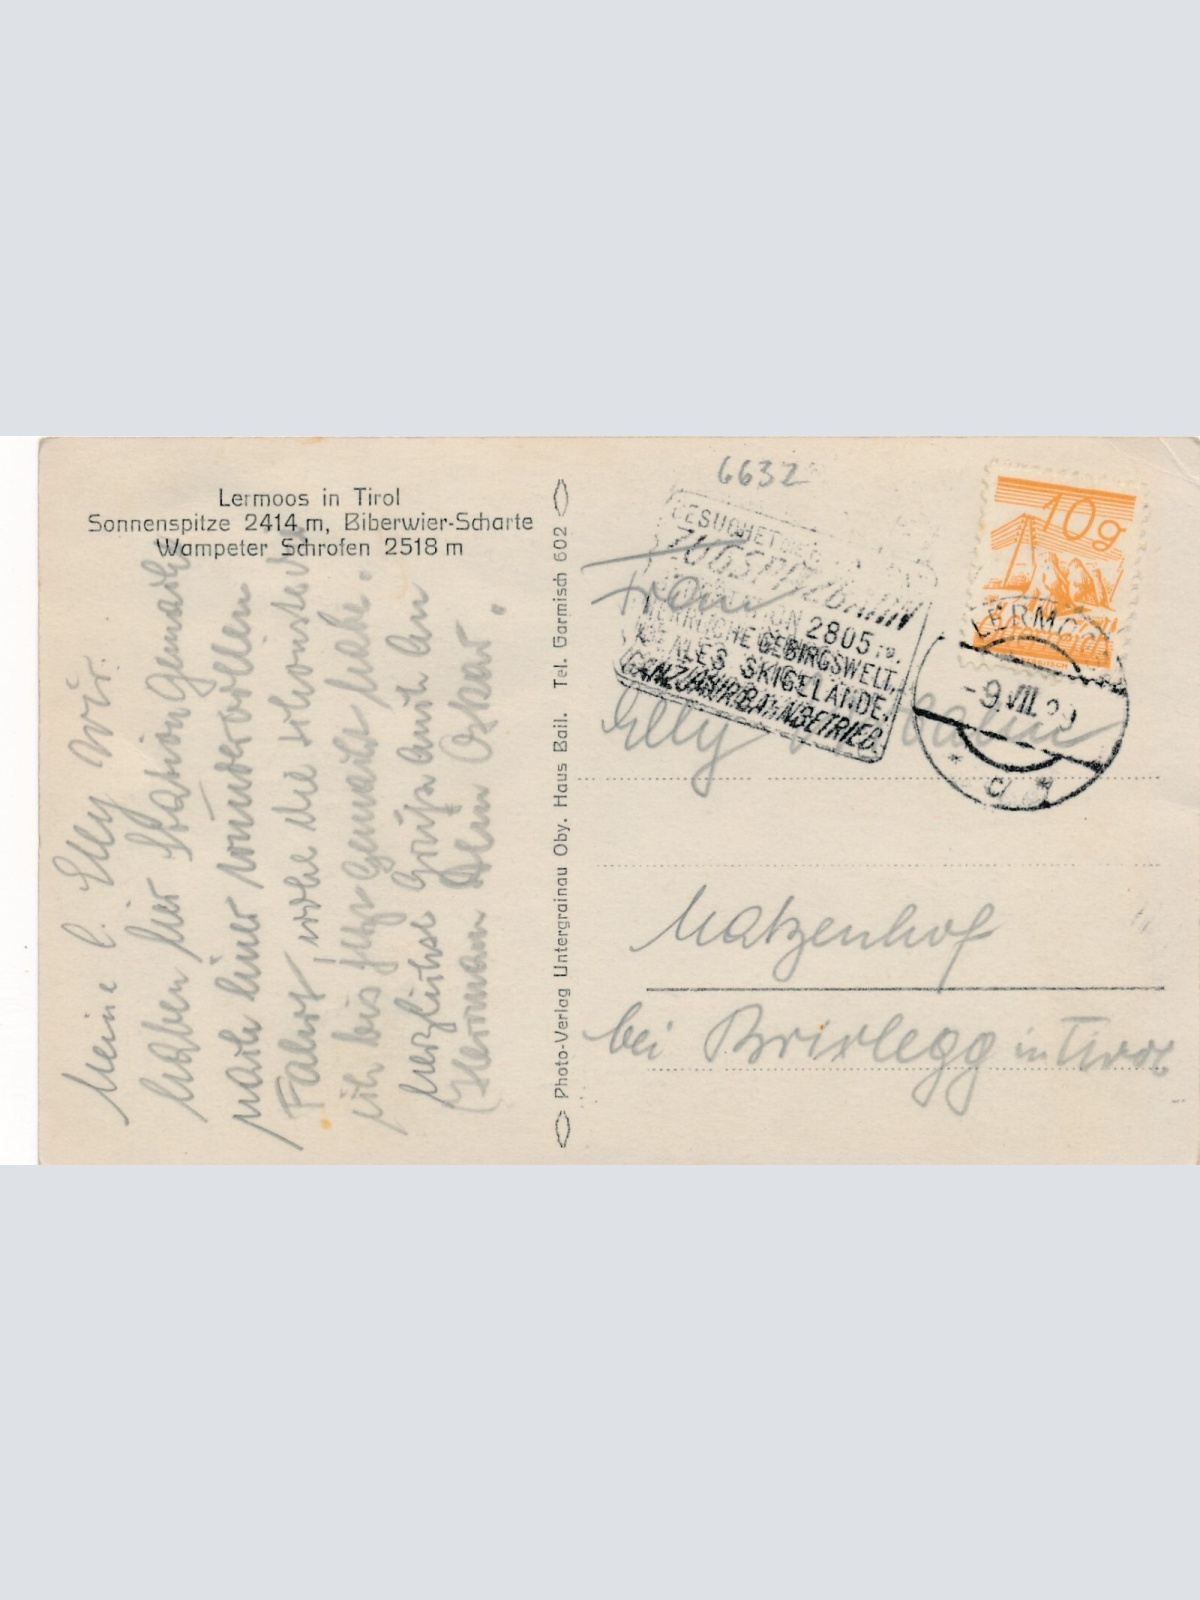 Lermoos in Tirol
Sonnenspitze 2414 m, Biberwier-Scharte
Wampeter Schrofen 2518 m
Meine l. Elly wir
haben hier Station gemacht
nach einer wundervollen
Fahrt, wohl die schönste d
ich bis jetzt gemacht habe.
herzlichste Grüße auch an
Hermann Dein Oskar.
Photo-Verlag Untergrainau Oby. Haus Bail. Tel. Garmisch 602
6632
BESUCHET
ZUGSPITZBAHN
2805 m.
HERRLICHE GEBIRGSWELT,
IDEALES SKIGELÄNDE,
GANZJÄHR. BAHNBETRIEB.
10g
Österreich
LERMOOS
-9.VII.29
Frau
Elly
Matzenhof
bei Brixlegg in Tirol